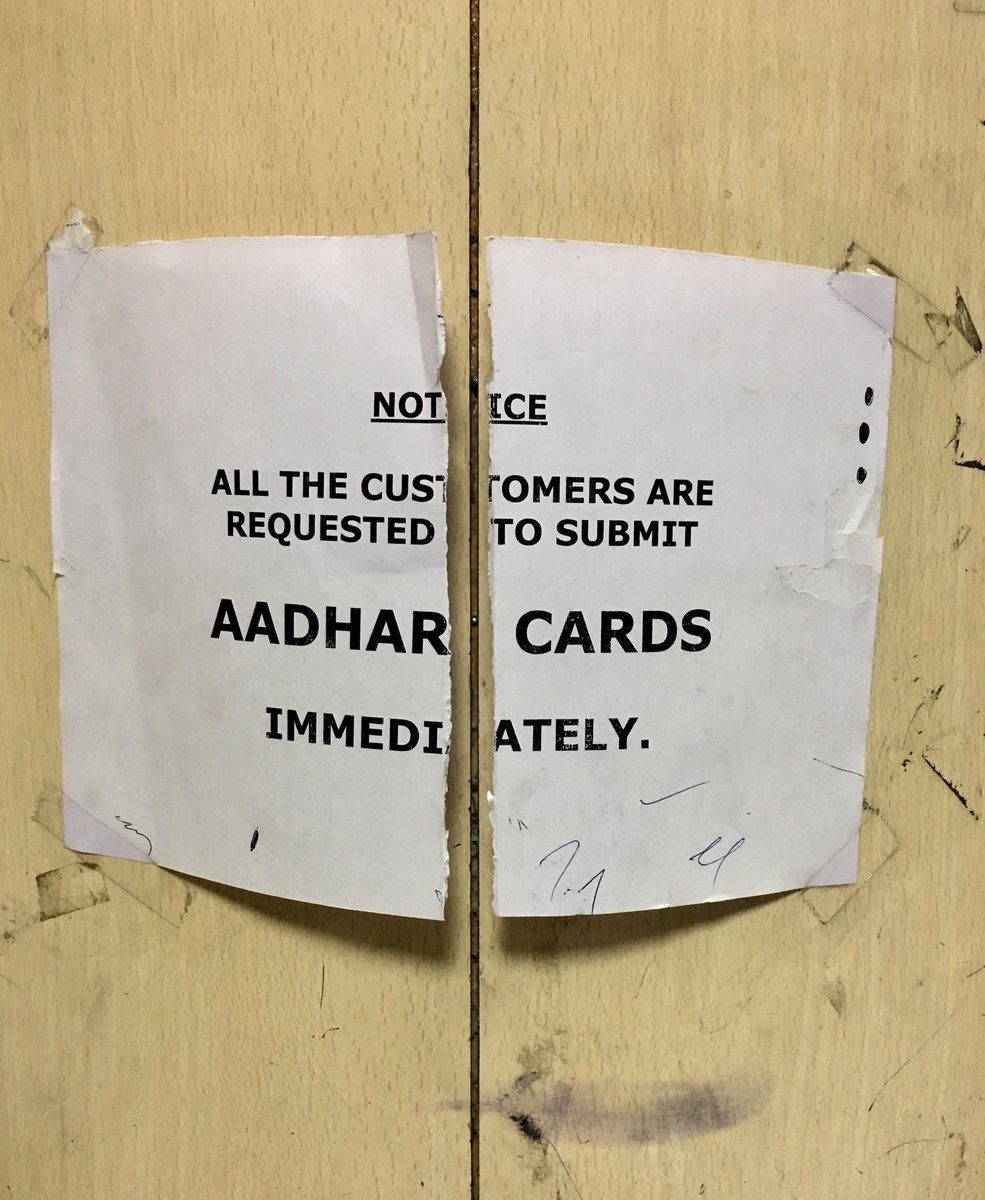 NOTICE
ALL THE CUSTOMERS ARE
REQUESTED TO SUBMIT
AADHAR CARDS
IMMEDIATELY.